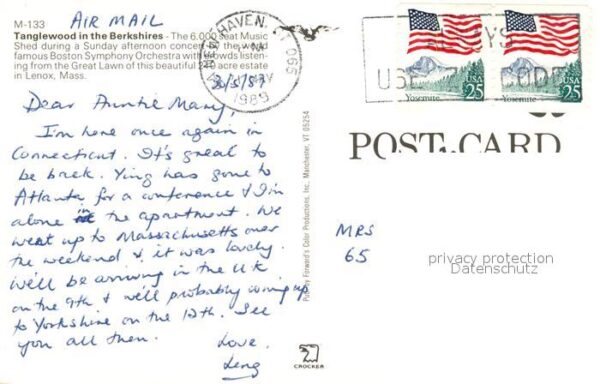 AIR MAIL
M-133
Tanglewood in the Berkshires - The 6,000 seat Music
Shed during a Sunday afternoon concert by the world
famous Boston Symphony Orchestra with crowds listen-
ing from the Great Lawn of this beautiful 210 acre estate
in Lenox, Mass.
HAVEN,
065
PM
1989
USE ZIP CODE
USA
25
Yosemite
USA
25
Yosemite
Dear Auntie Mary,
I'm here once again in
Connecticut. It's great to
be back. Ying has gone to
Atlanta for a conference & I'm
alone in the apartment. We
went up to Massachusetts over
the weekend & it was lovely.
We'll be arriving in the UK
on the 9th & we'll probably coming up
to Yorkshire on the 12th. See
you all then.
Love,
Leng
Forward's Color Productions, Inc., Manchester, VT 05254
CROCKER
POST CARD
MRS
65
privacy protection
Datenschutz